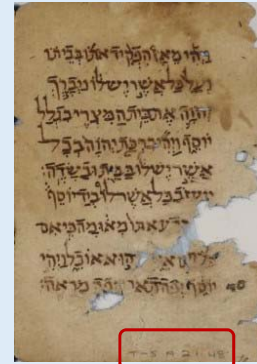 ויהי מאז הפקיד אתו בביתו
ועל כל אשר יש לו ויברך
יהוה את בית המצרי בגלל
יוסף ויהי ברכת יהוה בכל
אשר יש לו בבית ובשדה:
ויעזב כל אשר לו ביד יוסף
ידע אתו מאומה כי אם
הוא אוכל ויהי
יוסף יפה תאר מראה:
T-S A 21.48